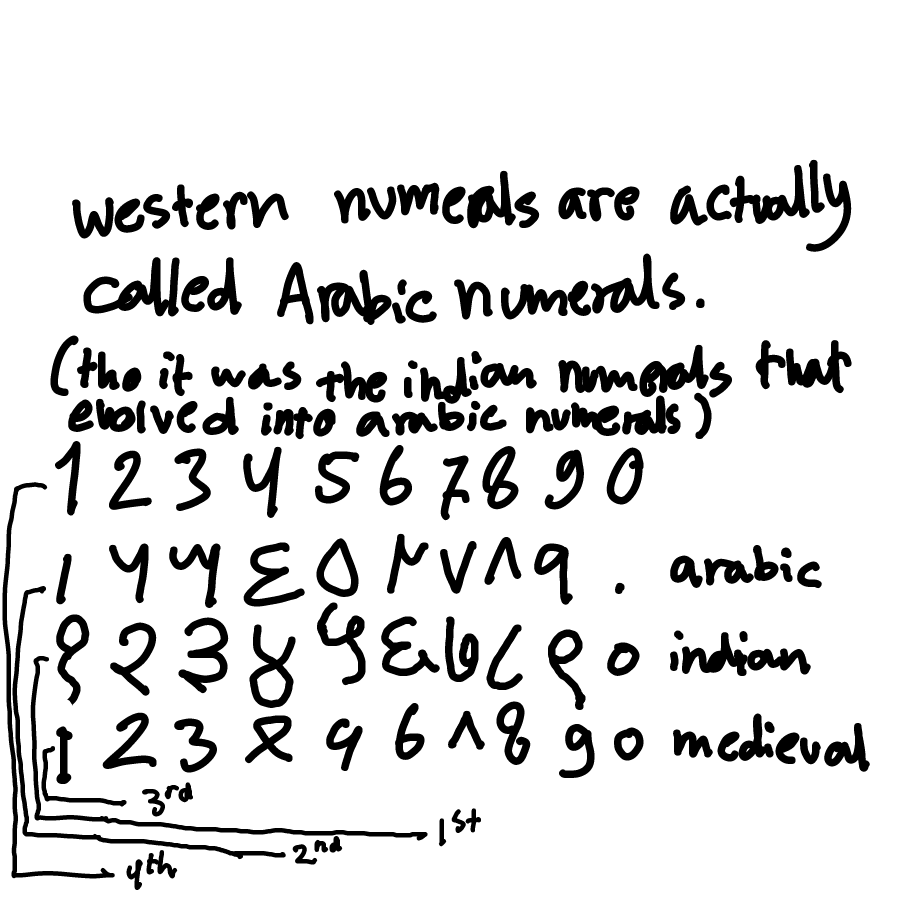 western numerals are actually
called Arabic numerals.
(tho it was the indian numerals that
evolved into arabic numerals)
1 2 3 4 5 6 7 8 9 0
١ ٢ ٣ ٤ ٥ ٦ ٧ ٨ ٩ . arabic
१ २ ३ ४ ५ ६ ७ ८ ९ ० indian
I 2 3 ꝝ 9 6 ʌ 8 9 0 medieval
3rd
1st
2nd
4th